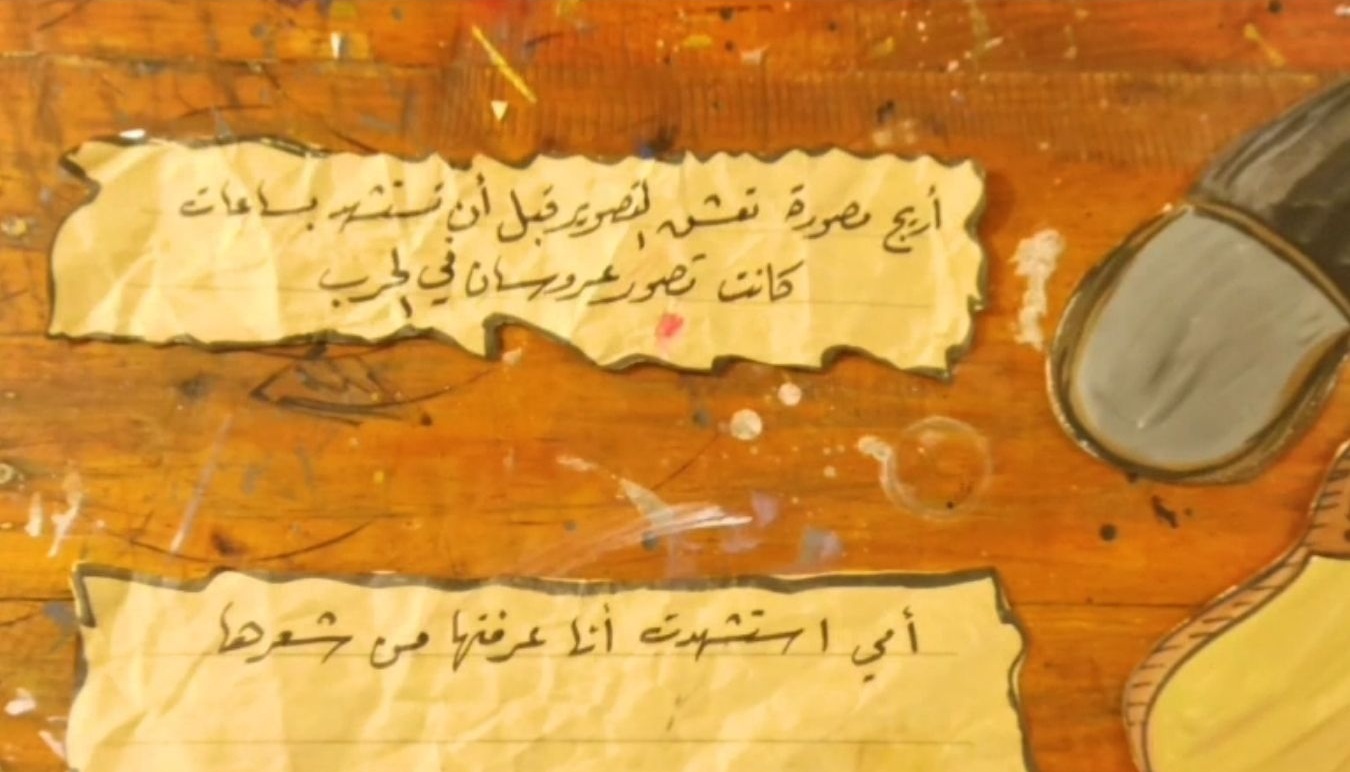 أريج مصورة تعشق التصوير قبل أن تستشهد بساعات
كانت تصور عروسان في الحرب
أمي استشهدت أنا عرفتها من شعرها